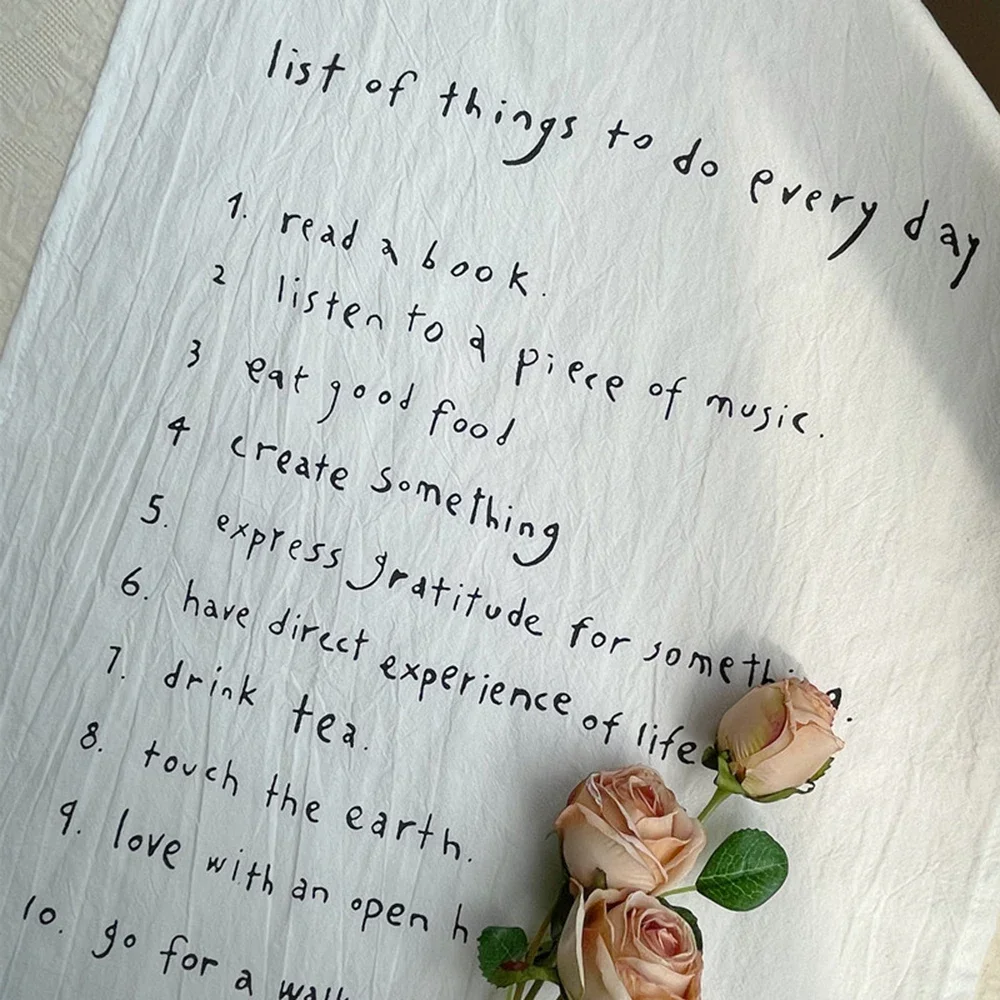 list of things to do every day
1. read a book.
2 listen to a piece of music.
3 eat good food
4 create something
5. express gratitude for something.
6. have direct experience of life
7. drink tea.
8. touch the earth.
9. love with an open
10. go for a walk